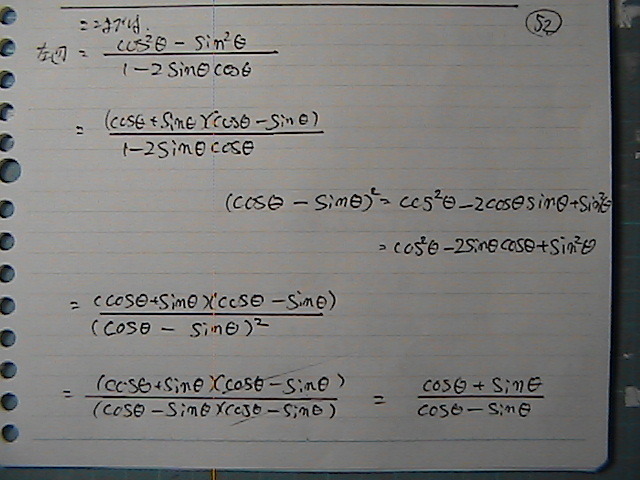 ここまでは、
52
左辺 = cos²θ - sin²θ / 1 - 2 sinθ cosθ
= (cosθ + sinθ)(cosθ - sinθ) / 1 - 2 sinθ cosθ
(cosθ - sinθ)² = cos²θ - 2cosθ sinθ + sin²θ
= cos²θ - 2sinθ cosθ + sin²θ
= (cosθ + sinθ)(cosθ - sinθ) / (cosθ - sinθ)²
= (cosθ + sinθ)(cosθ - sinθ) / (cosθ - sinθ)(cosθ - sinθ) = cosθ + sinθ / cosθ - sinθ